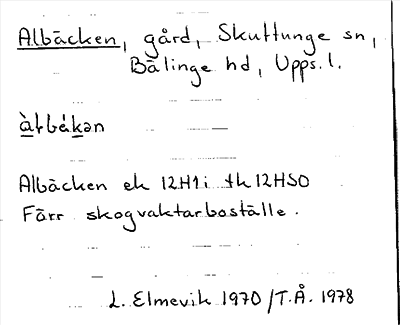 Albäcken, gård, Skuttunge sn,
Bälinge hd, Upps. l.
àlbákən
Albäcken ek 12H1i tk 12HSO
Förr skogvaktarboställe.
L. Elmevik 1970 /T.Å. 1978